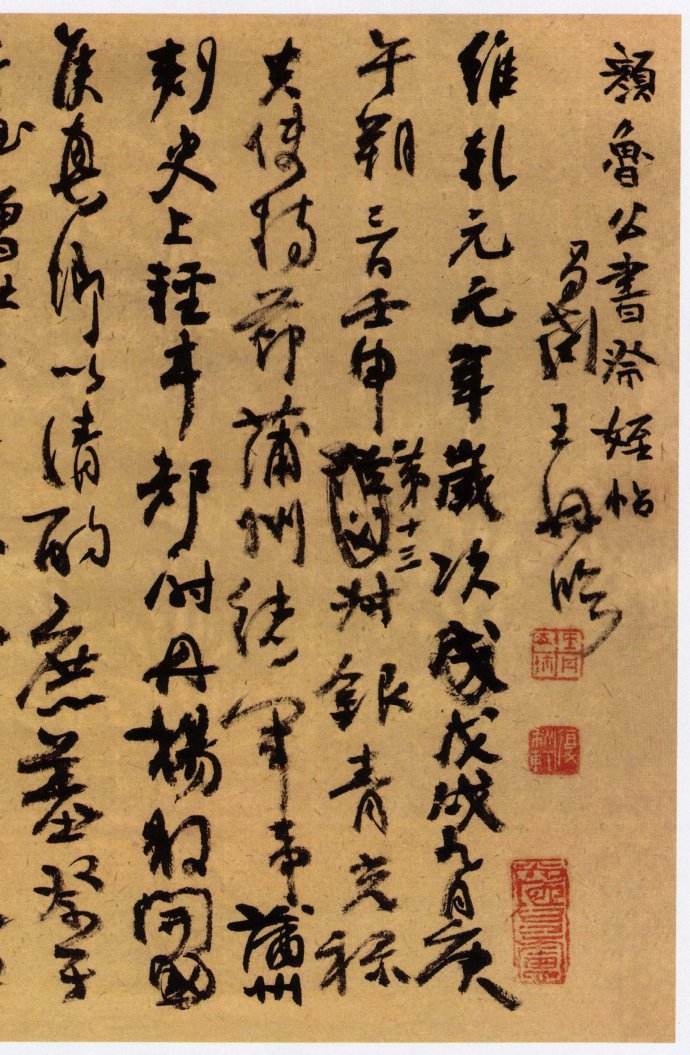 顏魯公書祭姪帖
王
臨
維乾元元年歲次戊戌九月庚
午朔三日壬申
第十三
叔銀青光祿
夫使持節蒲州諸軍事蒲州
刺史上輕車都尉丹楊縣開國
侯真卿以清酌庶羞祭于